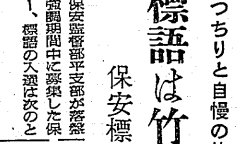 つちりと自慢の
標語は竹
保安標
保安監督部平支部が落盤
強調期間中に募集した保
、標語の入選は次のと